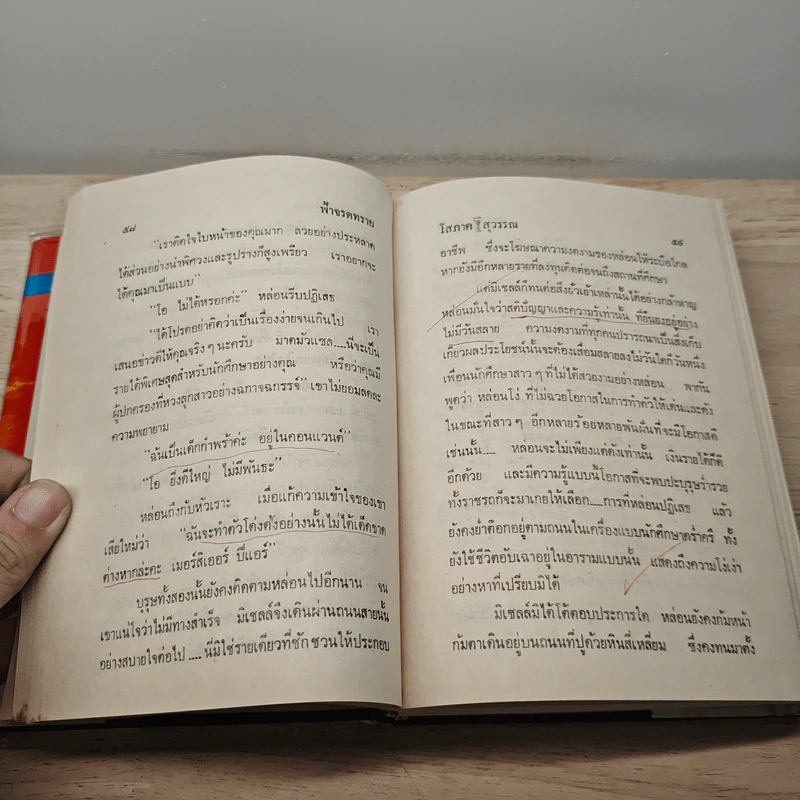 ๕๘ ฟ้าจรดทราย
"เราติดใจใบหน้าของคุณมาก สวยอย่างประหลาด
ได้ส่วนอย่างน่าพิศวงและรูปร่างก็สูงเพรียว เราอยากจะ
ได้คุณมาเป็นแบบ"
"โอ ไม่ได้หรอกค่ะ" หล่อนรีบปฏิเสธ
"ได้โปรดอย่าคิดว่าเป็นเรื่องง่ายจนเกินไป เรา
เสนอข่าวดีให้คุณจริง ๆ นะครับ มาดมัวแซล....นี่จะเป็น
รายได้พิเศษสุดสำหรับนักศึกษาอย่างคุณ หรือว่าคุณมี
ผู้ปกครองที่หวงลูกสาวอย่างฉกาจฉกรรจ์" เขาไม่ยอมลดละ
ความพยายาม
"ฉันเป็นเด็กกำพร้าค่ะ อยู่ในคอนแวนต์"
"โอ ยิ่งดีใหญ่ ไม่มีพันธะ"
หล่อนถึงกับหัวเราะ เมื่อแก้ความเข้าใจของเขา
เสียใหม่ว่า "ฉันจะทำตัวโด่งดังอย่างนั้นไม่ได้เด็ดขาด
ต่างหากล่ะคะ เมอร์สิเออร์ ปีแอร์"
บุรุษทั้งสองนั้นยังคงติดตามหล่อนไปอีกนาน จน
เขาแน่ใจว่าไม่มีทางสำเร็จ มิเชลล์จึงเดินผ่านถนนสายนั้น
อย่างสบายใจต่อไป .... นี่มิใช่รายเดียวที่ชักชวนให้ประกอบ
โสภาค สุวรรณ ๕๙
อาชีพ ซึ่งจะโฆษณาความงดงามของหล่อนให้ระบือโกล
หากยังมีอีกหลายรายที่ลงทุนติดต่อจนถึงสถานที่ศึกษา
แต่มิเชลล์ก็ทนต่อสิ่งยั่วเย้าเหล่านั้นได้อย่างกล้าหาญ
หล่อนมั่นใจว่าสติปัญญาและความรู้เท่านั้น ที่ยืนยงอยู่อย่าง
ไม่มีวันสลาย ความงดงามที่ทุกคนปรารถนาเป็นสิ่งเก็บ
เกี่ยวผลประโยชน์นั้นจะต้องเสื่อมสลายลงไม่วันใดก็วันหนึ่ง
เพื่อนนักศึกษาสาว ๆ ที่ไม่ได้สวยงามอย่างหล่อน พากัน
พูดว่า หล่อนโง่ ที่ไม่ฉวยโอกาสในการทำตัวให้เด่นและดัง
ในขณะที่สาว ๆ อีกหลายร้อยหลายพันฝันที่จะมีโอกาสดี
เช่นนั้น.... หล่อนจะไม่เพียงแต่ดังเท่านั้น เงินรายได้ก็ดี
อีกด้วย และมีความรู้แบบนี้โอกาสที่จะพบปะบุรุษร่ำรวย
ทั้งราชรถก็จะมาเกยให้เลือก....การที่หล่อนปฏิเสธ แล้ว
ยังคงย่ำต๊อกอยู่ตามถนนในเครื่องแบบนักศึกษาคร่ำครึ ทั้ง
ยังใช้ชีวิตอับเฉาอยู่ในอารามแบบนั้น แสดงถึงความโง่เง่า
อย่างหาที่เปรียบมิได้
มิเชลล์มิได้โต้ตอบประการใด หล่อนยังคงก้มหน้า
ก้มตาเดินอยู่บนถนนที่ปูด้วยหินสี่เหลี่ยม ซึ่งคงทนมาตั้ง